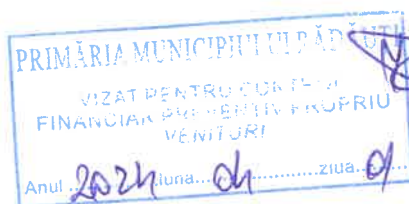 PRIMĂRIA MUNICIPIULUI RĂDĂUȚI
VIZAT PENTRU CONTROL
FINANCIAR PREVENTIV PROPRIU
VENITURI
Anul 2024 luna 04 ziua 01